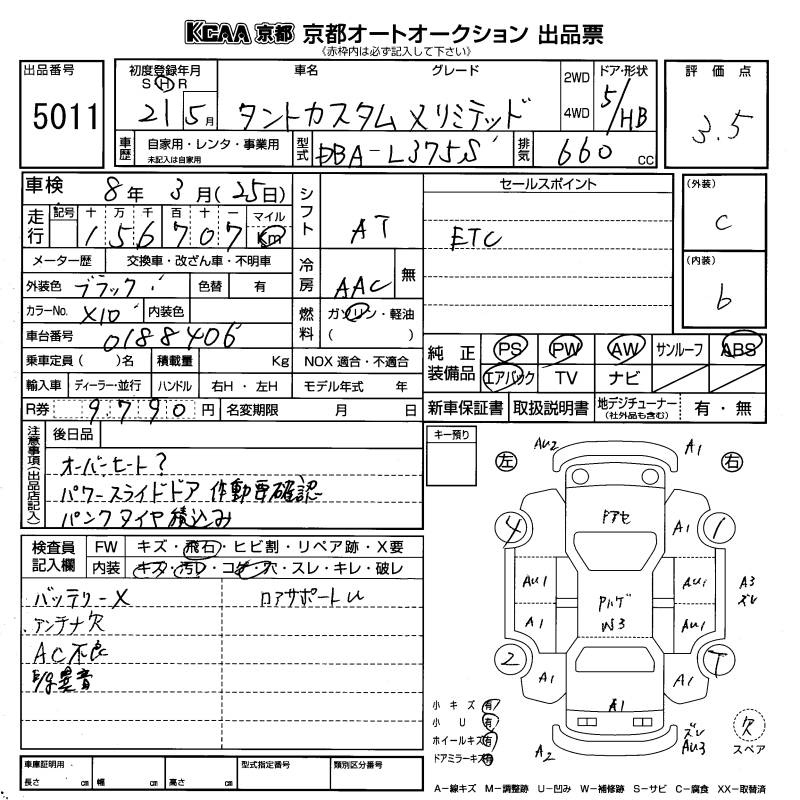 KCAA 京都 京都オートオークション 出品票
《赤枠内は必ず記入して下さい》
出品番号 5011
初度登録年月 S H R 21 5月
車名 グレード
タントカスタム Xリミテッド
2WD 4WD
ドア・形状 5/HB
評価点 3.5
車歴 自家用・レンタ・事業用 未記入は自家用
型式 DBA-L375S
排気 660 CC
車検 8年 3月(25日)
走行 記号 十 万 千 百 十 一 マイル Km
156707
メーター歴 交換車・改ざん車・不明車
外装色 ブラック 色替 有
カラーNo. X10 内装色
車台番号 0188406
乗車定員( )名 積載量 Kg NOX 適合・不適合
輸入車 ディーラー・並行 ハンドル 右H・左H モデル年式 年
R券 9,790円 名変期限 月 日
シフト AT
冷房 AAC 無
燃料 ガソリン・軽油 ( )
セールスポイント
ETC
(外装) C
(内装) b
純正装備品 PS PW AW サンルーフ ABS
エアバック TV ナビ
新車保証書 取扱説明書 地デジチューナー (社外品も含む) 有・無
注意事項(出品店記入) 後日品
オーバーヒート?
パワースライドドア 作動要確認
パンクタイヤ積込み
キー預り
検査員記入欄 FW キズ・飛石・ヒビ割・リペア跡・X要
内装 キズ・汚レ・コゲ・穴・スレ・キレ・破レ
バッテリーX ロアサポートU
アンテナ欠
AC不良
異音
左 右
AU2 A1
4 1
ドアセ A1
AU1 AU1 A3 ズレ
A1 W3 AU1
2 T
A1 A1
A1
A2 ズレ AU3
欠 スペア
小キズ 有
小U 有
ホイールキズ 有
ドアミラーキズ 有
車庫証明用 長さ cm 幅 cm 高さ cm 型式指定番号 類別区分番号
A−線キズ M−調整跡 U−凹み W−補修跡 S−サビ C−腐食 XX−取替済